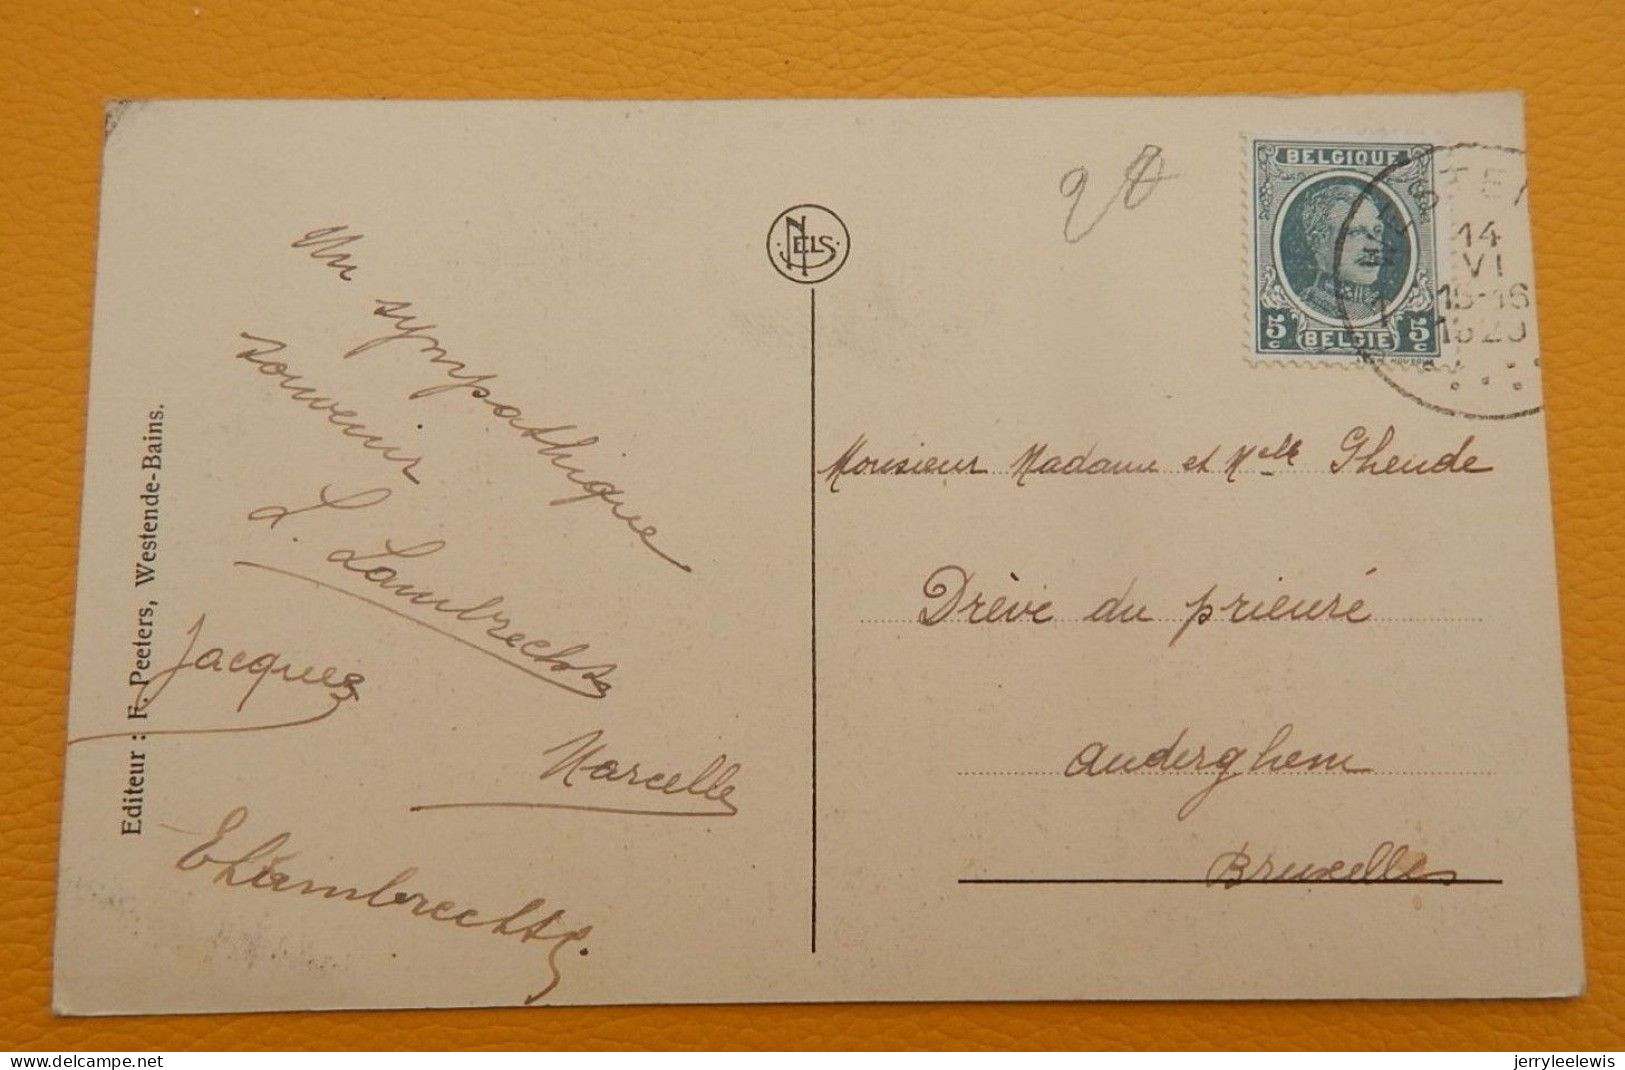 Un sympathique
souvenir
L. Lambrechts
Jacques
Marcelle
E Lambrechts.
Editeur : F. Peeters, Westende-Bains.
NELS
BELGIQUE
5c BELGIE 5c
14
VI
15-16
Monsieur Madame et Melle Gheude
Drève du prieuré
Auderghem
Bruxelles
Delcampe.net
jerryleelewis